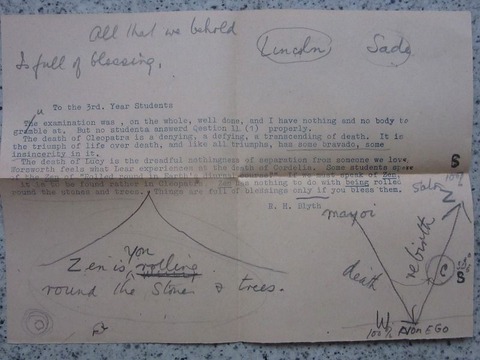 All that we behold
Is full of blessing.
Lincoln Sade
To the 3rd. Year Students
The examination was, on the whole, well done, and I have nothing and no body to
grumble at. But no students answerd Question 11 (7) properly.
The death of Cleopatra is a denying, a defying, a transcending of death. It is
the triumph of life over death, and like all triumphs, has some bravado, some
insincerity in it.
The death of Lucy is the dreadful nothingness of separation from someone we love.
Worsworth feels what Lear experiences at the death of Cordelia. Some students spoke
of the Zen of "Rolled round in Earth's
must speak of Zen,
it is to be found rather in Cleopatra. Zen has nothing to do with being rolled
round the stones and trees. Things are full of blessings only if you bless them.
R. H. Blyth
S
Zen is you rolling
round the stones & trees.
mayoi
Satori
Z
death
rebirth
S
W
100%
NON EGO